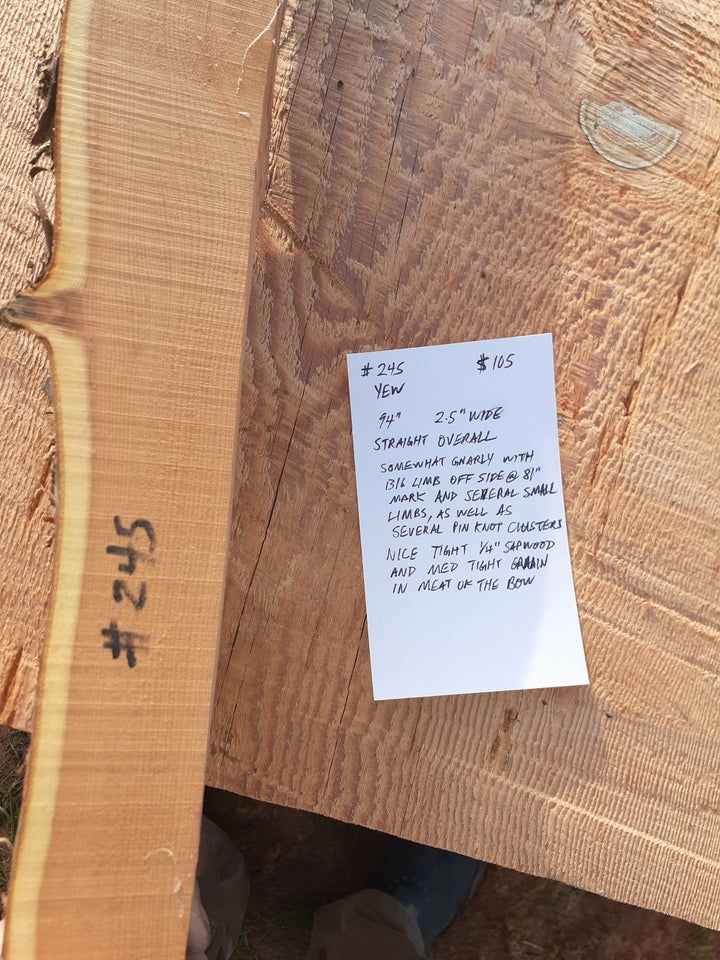 #245
#245 $105
YEW
94" 2.5" WIDE
STRAIGHT OVERALL
SOMEWHAT GNARLY WITH
BIG LIMB OFF SIDE @ 81"
MARK AND SEVERAL SMALL
LIMBS, AS WELL AS
SEVERAL PIN KNOT CLUSTERS
NICE TIGHT 1/4" SAPWOOD
AND MED TIGHT GRAIN
IN MEAT OF THE BOW